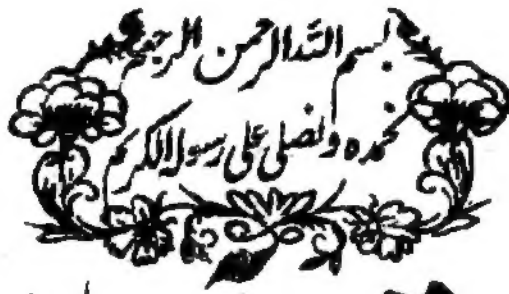 بسم اللہ الرحمن الرحیم
نحمدہ ونصلی علی رسولہ الکریم